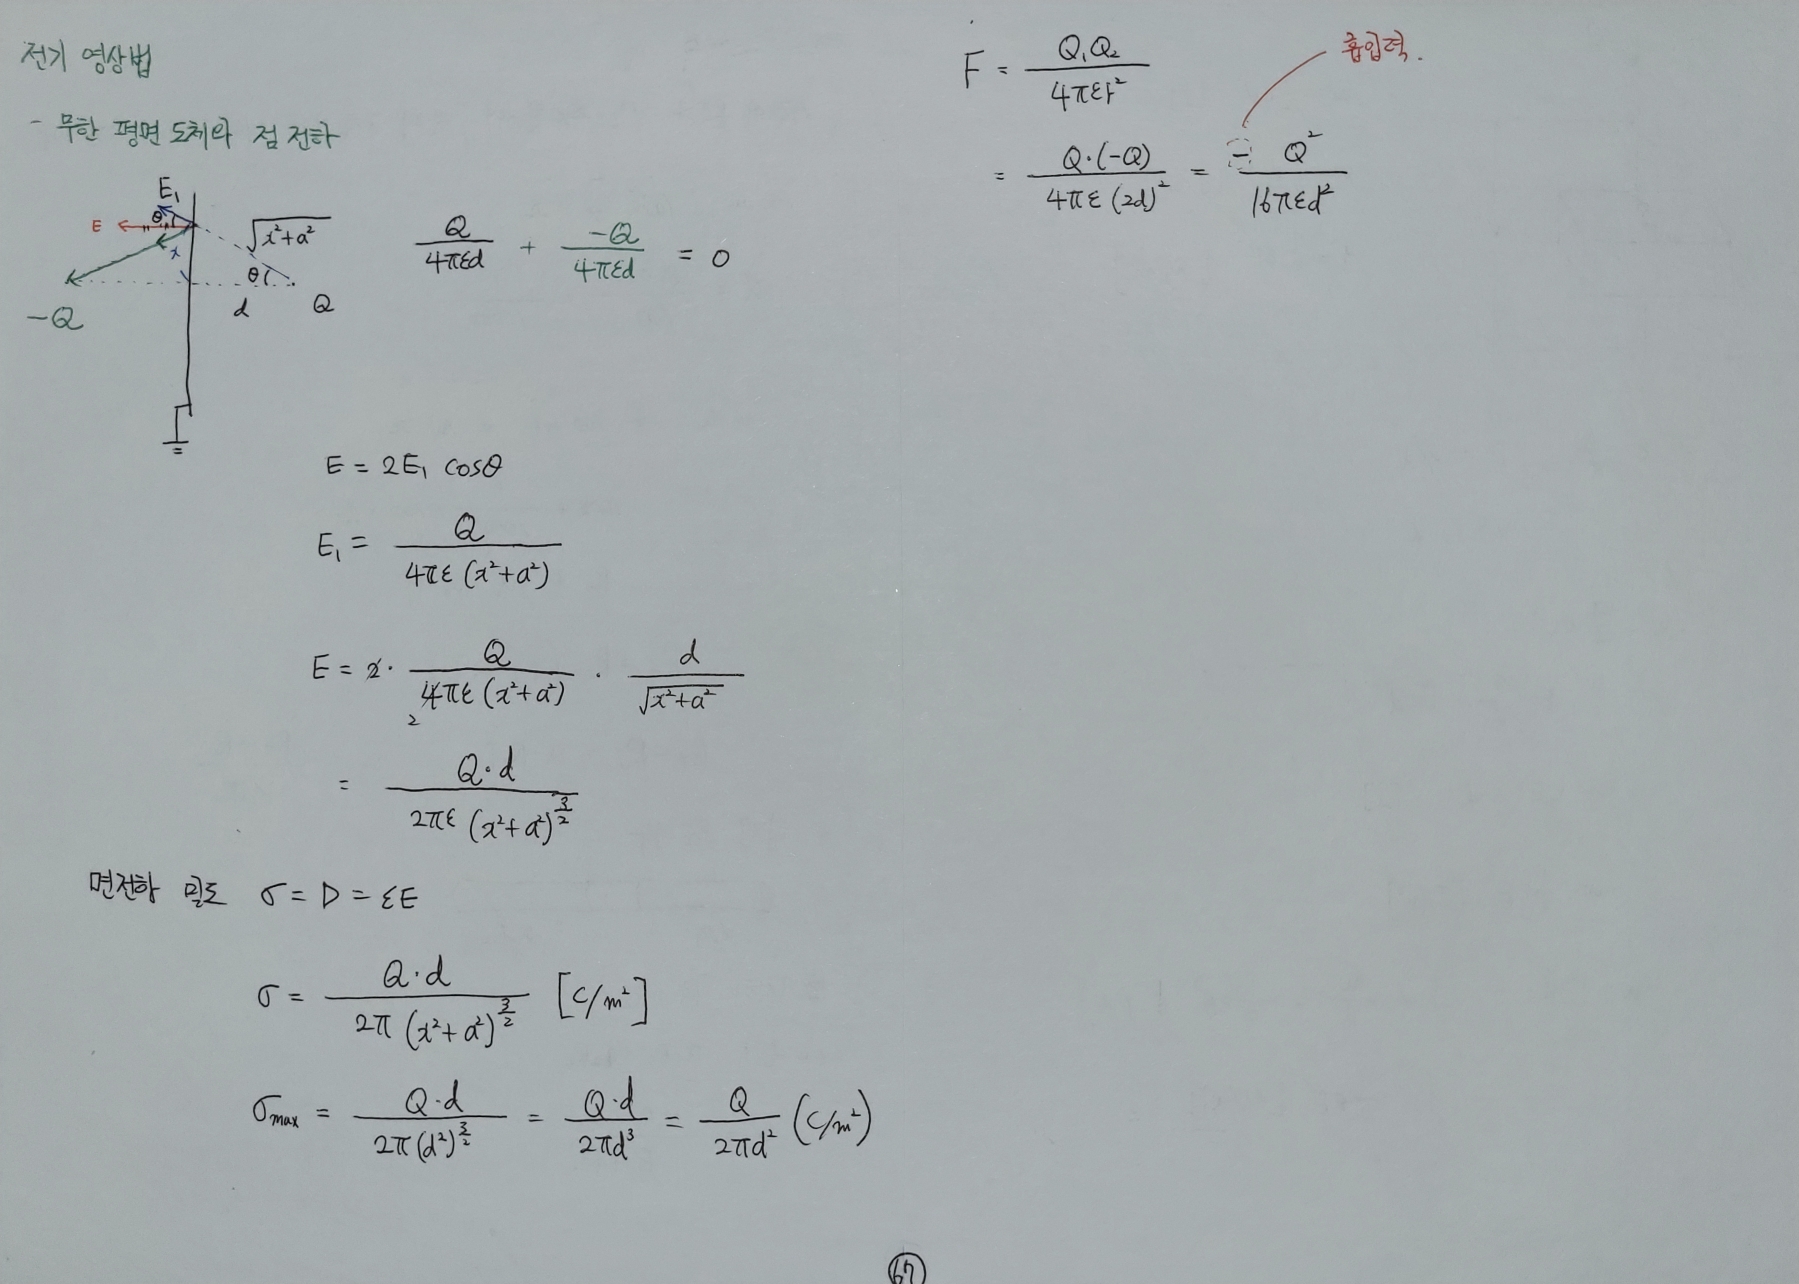 전기 영상법
- 무한 평면 도체와 점 전하
E₁
E θ
x
√(x²+a²)
θ
d
Q
-Q
Q/(4πεd) + -Q/(4πεd) = 0
E = 2E₁ cosθ
E₁ = Q/(4πε(x²+a²))
E = 2 · Q/(4πε(x²+a²)) · d/√(x²+a²)
2
= Q·d/(2πε(x²+a²)^(3/2))
면전하 밀도 σ = D = εE
σ = Q·d/(2π(x²+a²)^(3/2)) [C/m²]
σmax = Q·d/(2π(d²)^(3/2)) = Q·d/(2πd³) = Q/(2πd²) (C/m²)
F = Q₁Q₂/(4πεr²)
흡입력.
= Q·(-Q)/(4πε(2d)²) = - Q²/(16πεd²)
67